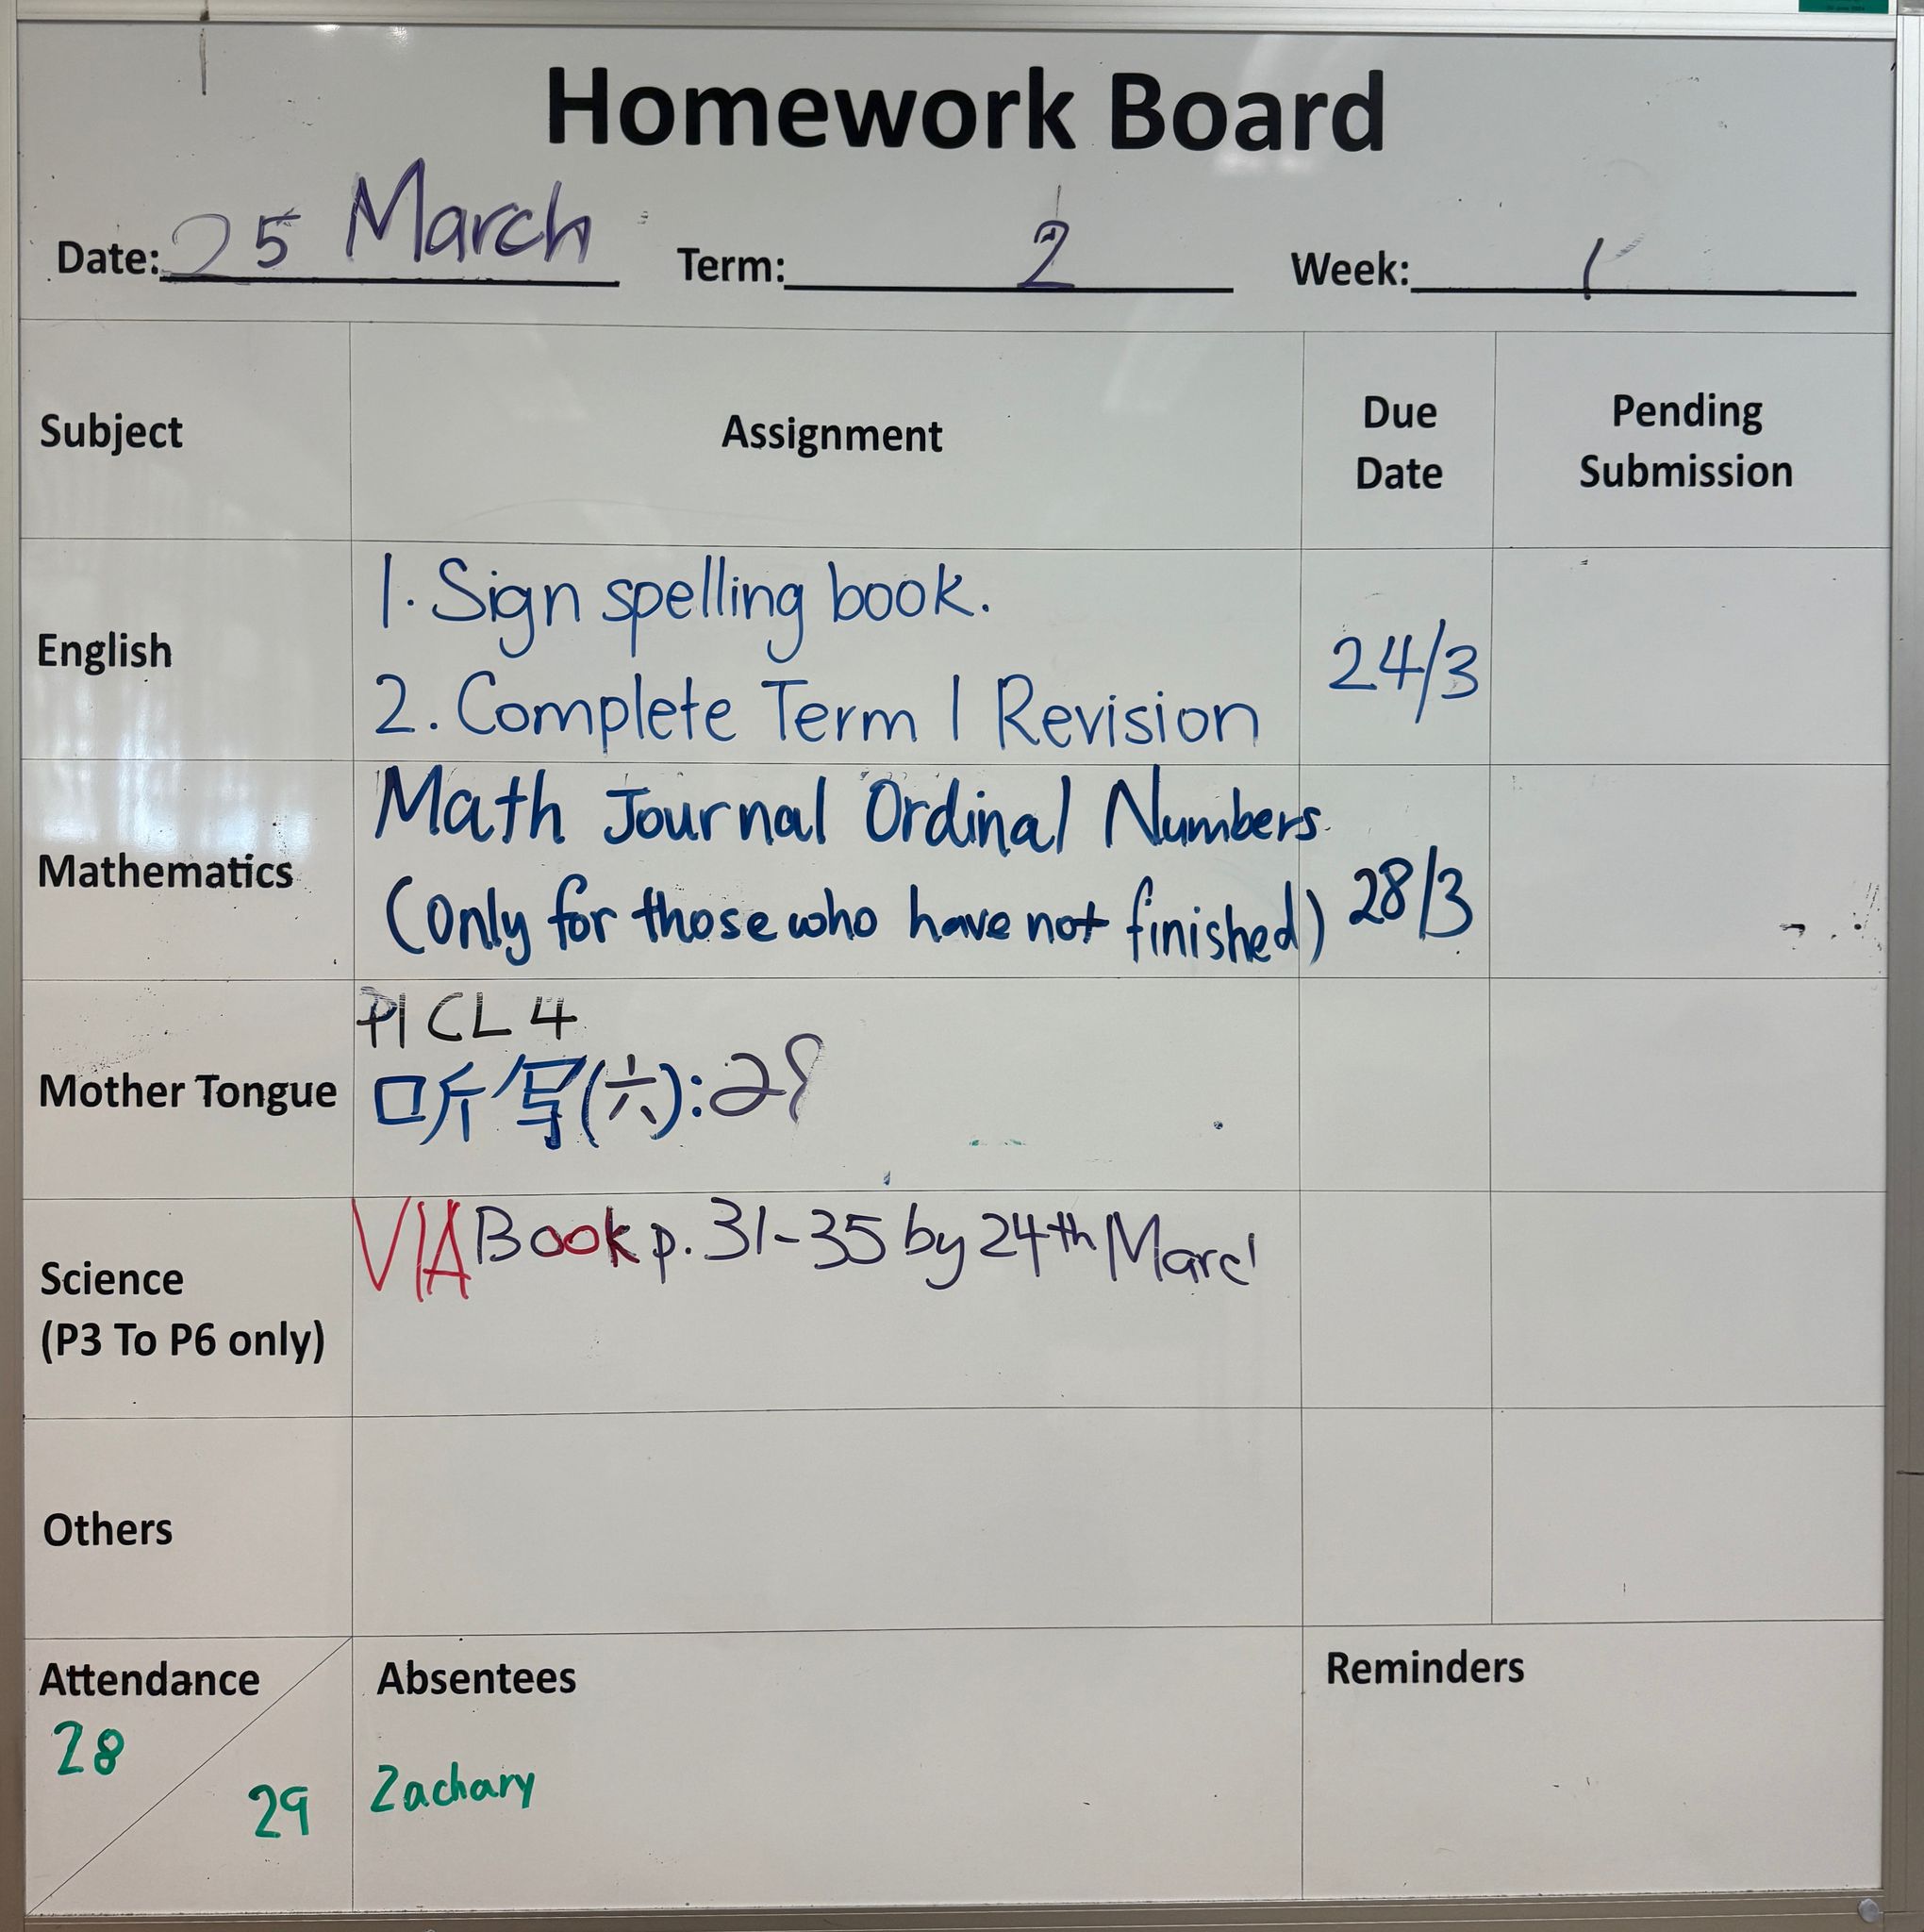 Homework Board
Date: 25 March Term: 2 Week: 1
Subject Assignment Due Date Pending Submission
English
1. Sign spelling book.
2. Complete Term 1 Revision
24/3
Mathematics
Math Journal Ordinal Numbers
(Only for those who have not finished)
28/3
Mother Tongue
P1 CL 4
听写(六):28
Science
(P3 To P6 only)
VIA Book p. 31-35 by 24th
Others
Attendance
28
29
Absentees
Zachary
Reminders